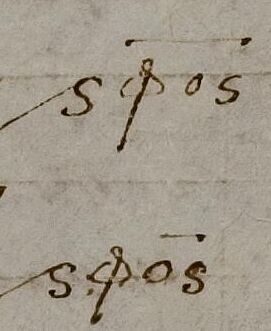 sϕos
sϕos